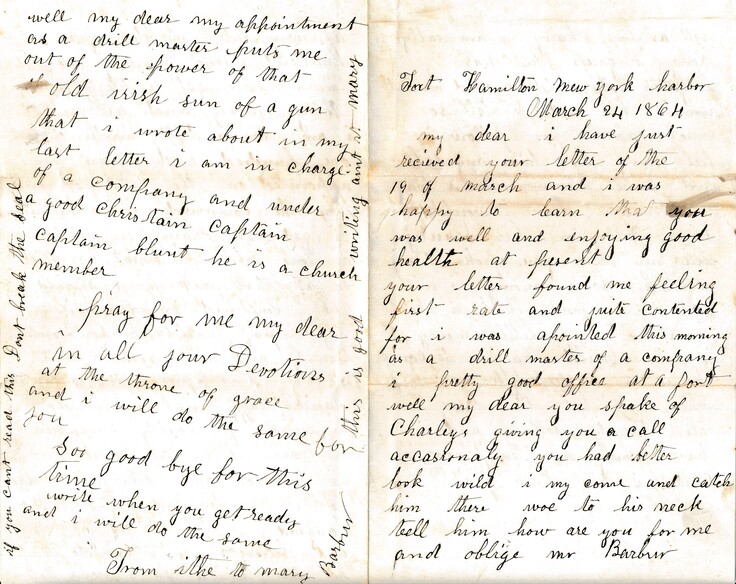 Fort Hamilton New york harbor
March 24 1864
my dear i have just
recieved your letter of the
19 of march and i was
happy to learn that you
was well and enjoying good
health at present
your letter found me feeling
first rate and quite contented
for i was apointed this morning
as a drill master of a company
i pretty good office at a fort
well my dear you spake of
Charleys giving you a call
accasionaly you had better
look wild i my come and catch
him there woe to his neck
tell him how are you for me
and oblige mr Barbur
well my dear my appointment
as a drill master puts me
out of the power of that
old irish sun of a gun
that i wrote about in my
last letter i am in charge
of a company and under
a good Christain Captain
Captain blunt he is a church
member
pray for me my dear
in all your Devotions
at the throne of grace
and i will do the same for
you
Soo good bye for this
time
write when you get ready
and i will do the same
From ithe to mary
Barbur
this is good writing aint it mary
if you cant read this Dont break the seal